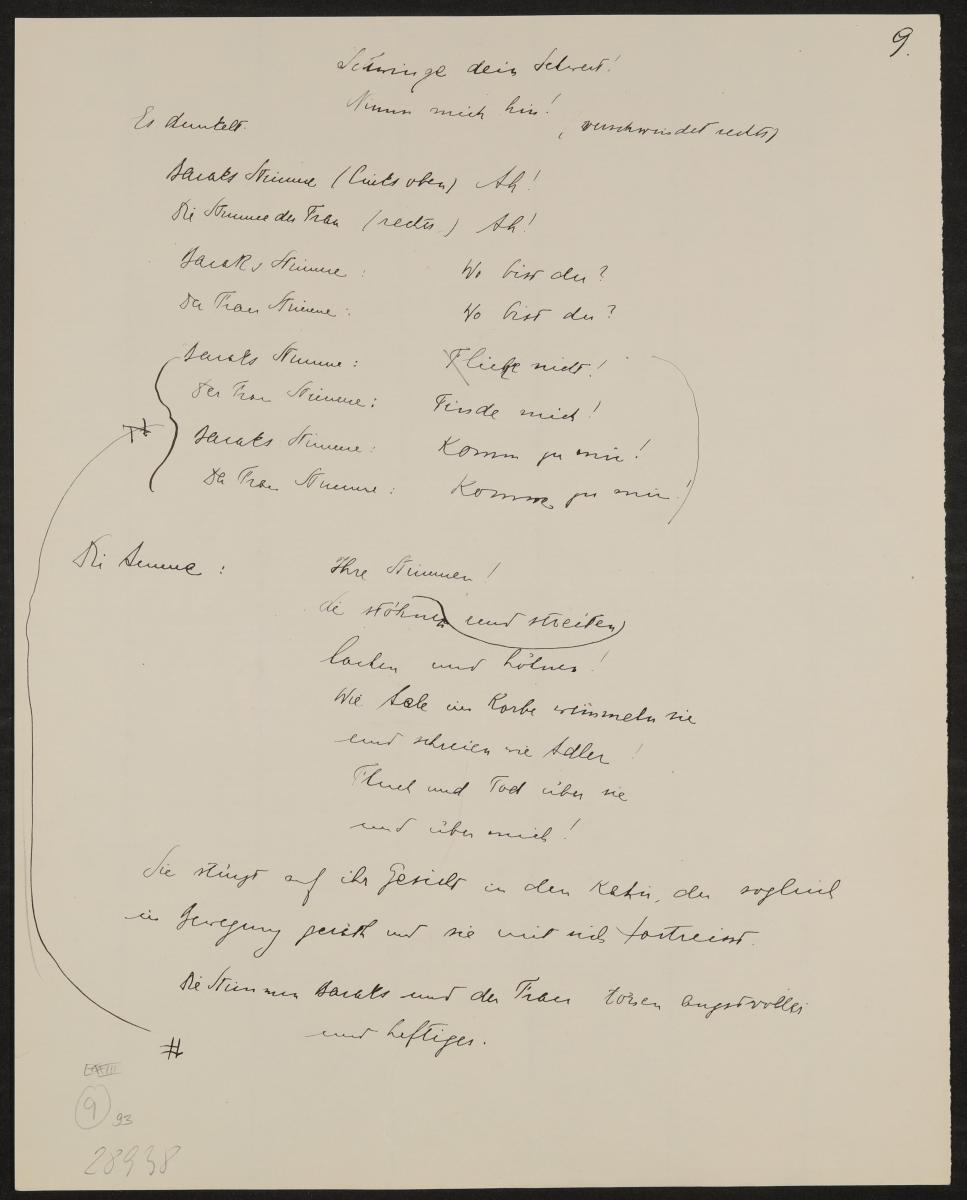 9.
Schwinge dein Schwert!
Nimm mich hin!
Es dunkelt.
(verschwindet rechts)
Baraks Stimme (links oben) Ah!
Die Stimme der Frau (rechts) Ah!
Baraks Stimme: Wo bist du?
Der Frau Stimme: Wo bist du?
Baraks Stimme: Fliehe nicht!
Der Frau Stimme: Finde mich!
#
Baraks Stimme: Komm zu mir!
Der Frau Stimme: Komm zu mir!
Die Amme: Ihre Stimmen!
die stöhnen und streiten
lachen und höhnen!
Wie Aale im Korbe wimmeln sie
und schreien wie Adler!
Fluch und Tod über sie
und über mich!
Sie stürzt auf ihr Gesicht in den Kahn, der sogleich
in Bewegung geräth und sie mit sich fortreisst.
Die Stimmen Baraks und der Frau tönen angstvoller
und heftiger.
#
9 93
28938